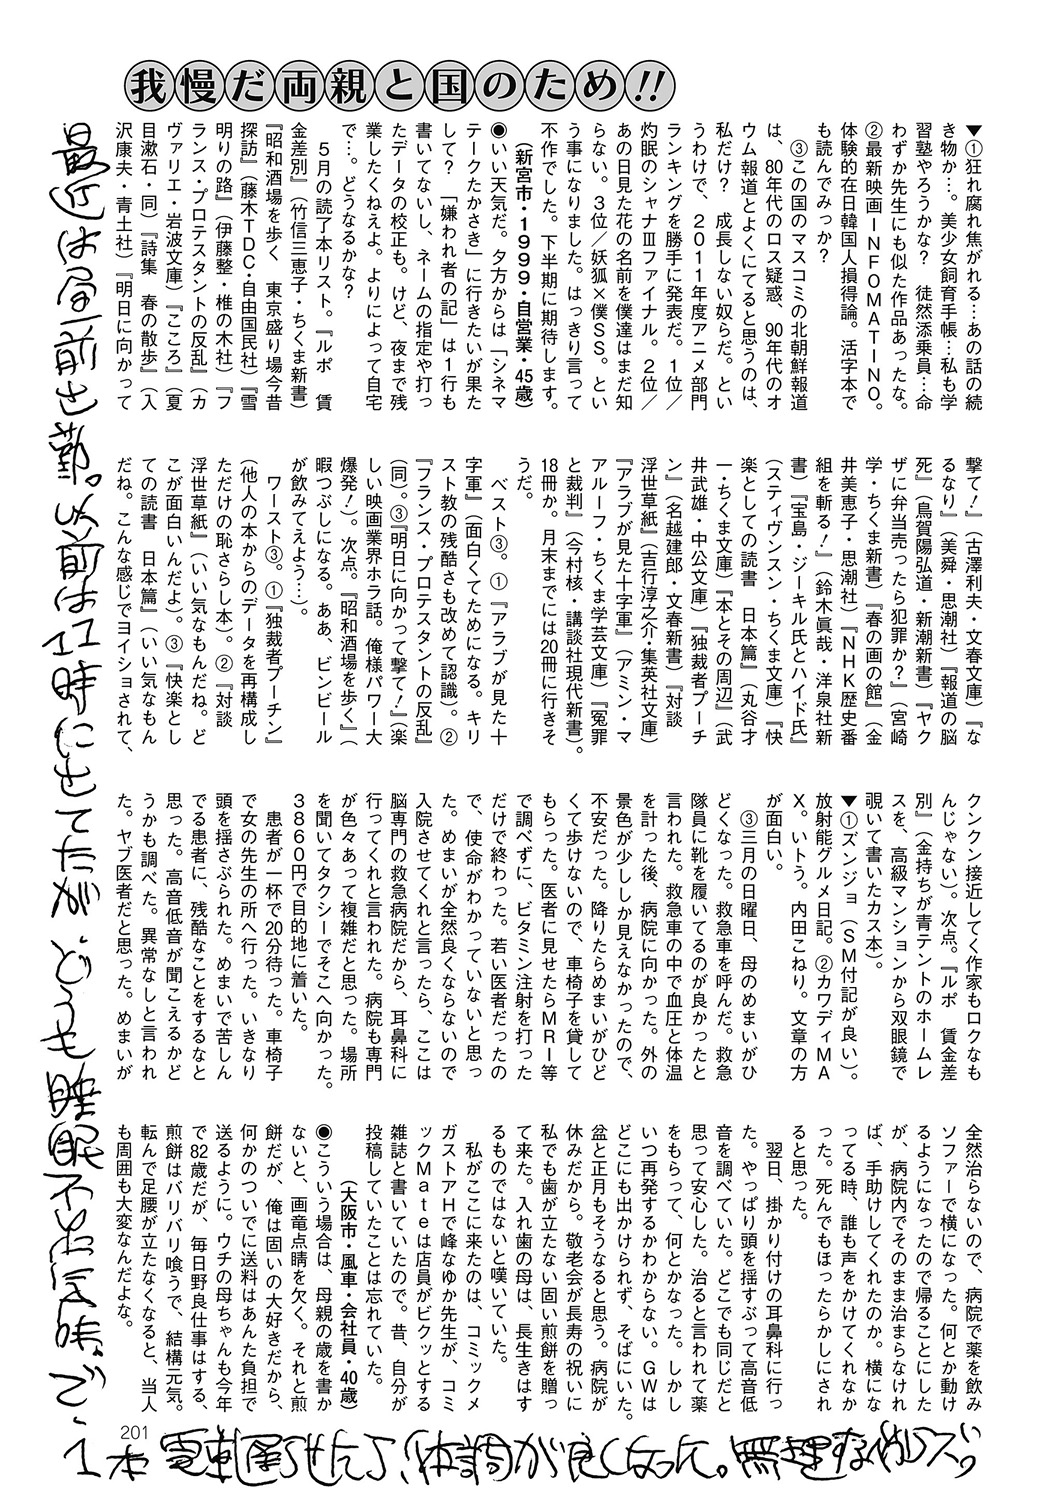 我慢だ両親と国のため!!
▼①狂れ腐れ焦がれる…あの話の続
き物か…。美少女飼育手帳…私も学
習塾やろうかな？　徒然添乗員…命
わずか先生にも似た作品あったな。
②最新映画ＩＮＦＯＭＡＴＩＮＯ。
体験的在日韓国人損得論。活字本で
も読んでみっか？
　③この国のマスコミの北朝鮮報道
は、80年代のロス疑惑、90年代のオ
ウム報道とよくにてると思うのは、
私だけ？　成長しない奴らだ。とい
うわけで、２０１１年度アニメ部門
ランキングを勝手に発表だ。１位／
灼眼のシャナⅢファイナル。２位／
あの日見た花の名前を僕達はまだ知
らない。３位／妖狐×僕ＳＳ。とい
う事になりました。はっきり言って
不作でした。下半期に期待します。
（新宮市・１９９９・自営業・45歳）
◉いい天気だ。夕方からは「シネマ
テークたかさき」に行きたいが果た
して？　「嫌われ者の記」は１行も
書いてないし、ネームの指定や打っ
たデータの校正も。けど、夜まで残
業したくねえよ。よりによって自宅
で…。どうなるかな？
　５月の読了本リスト。『ルポ　賃
金差別』（竹信三恵子・ちくま新書）
『昭和酒場を歩く　東京盛り場今昔
探訪』（藤木ＴＤＣ・自由国民社）『雪
明りの路』（伊藤整・椎の木社）『フ
ランス・プロテスタントの反乱』（カ
ヴァリエ・岩波文庫）『こころ』（夏
目漱石・同）『詩集　春の散歩』（入
沢康夫・青土社）『明日に向かって
撃て！』（古澤利夫・文春文庫）『な
るなり』（美舜・思潮社）『報道の脳
死』（烏賀陽弘道・新潮新書）『ヤク
ザに弁当売ったら犯罪か？』（宮崎
学・ちくま新書）『春の画の館』（金
井美恵子・思潮社）『ＮＨＫ歴史番
組を斬る！』（鈴木眞哉・洋泉社新
書）『宝島・ジーキル氏とハイド氏』
（スティヴンスン・ちくま文庫）『快
楽としての読書　日本篇』（丸谷才
一・ちくま文庫）『本とその周辺』（武
井武雄・中公文庫）『独裁者プーチ
ン』（名越健郎・文春新書）『対談
浮世草紙』（吉行淳之介・集英社文庫）
『アラブが見た十字軍』（アミン・マ
アルーフ・ちくま学芸文庫）『冤罪
と裁判』（今村核・講談社現代新書）。
18冊か。月末までには20冊に行きそ
うだ。
　ベスト③。①『アラブが見た十
字軍』（面白くてためになる。キリ
スト教の残酷さも改めて認識）。②
『フランス・プロテスタントの反乱』
（同）。③『明日に向かって撃て！』（楽
しい映画業界ホラ話。俺様パワー大
爆発！）。次点。『昭和酒場を歩く』（
暇つぶしになる。ああ、ビンビール
が飲みてえよう…）。
　ワースト③。①『独裁者プーチン』
（他人の本からのデータを再構成し
ただけの恥さらし本）。②『対談
浮世草紙』（いい気なもんだね。ど
こが面白いんだよ）。③『快楽とし
ての読書　日本篇』（いい気なもん
だね。こんな感じでヨイショされて、
クンクン接近してく作家もロクなも
んじゃない）。次点。『ルポ　賃金差
別』（金持ちが青テントのホームレ
スを、高級マンションから双眼鏡で
覗いて書いたカス本）。
▼①ズンジョ（ＳＭ付記が良い）。
放射能グルメ日記。②カワディＭＡ
Ｘ。いトう。内田こねり。文章の方
が面白い。
　③三月の日曜日、母のめまいがひ
どくなった。救急車を呼んだ。救急
隊員に靴を履いてるのが良かったと
言われた。救急車の中で血圧と体温
を計った後、病院に向かった。外の
景色が少ししか見えなかったので、
不安だった。降りたらめまいがひど
くて歩けないので、車椅子を貸して
もらった。医者に見せたらＭＲＩ等
で調べずに、ビタミン注射を打った
だけで終わった。若い医者だったの
で、使命がわかっていないと思っ
た。めまいが全然良くならないので
入院させてくれと言ったら、ここは
脳専門の救急病院だから、耳鼻科に
行ってくれと言われた。病院も専門
が色々あって複雑だと思った。場所
を聞いてタクシーでそこへ向かった。
３８６０円で目的地に着いた。
　患者が一杯で20分待った。車椅子
で女の先生の所へ行った。いきなり
頭を揺さぶられた。めまいで苦しん
でる患者に、残酷なことをするなと
思った。高音低音が聞こえるかど
うかも調べた。異常なしと言われ
た。ヤブ医者だと思った。めまいが
全然治らないので、病院で薬を飲み
ソファーで横になった。何とか動け
るようになったので帰ることにした
が、病院内でそのまま治まらなけれ
ば、手助けしてくれたのか。横にな
ってる時、誰も声をかけてくれなか
った。死んでもほったらかしにされ
ると思った。
　翌日、掛かり付けの耳鼻科に行っ
た。やっぱり頭を揺すぶって高音低
音を調べていた。どこでも同じだと
思って安心した。治ると言われて薬
をもらって、何とかなった。しかし
いつ再発するかわからない。ＧＷは
どこにも出かけられず、そばにいた。
盆と正月もそうなると思う。病院が
休みだから。敬老会が長寿の祝いに
私でも歯が立たない固い煎餅を贈っ
て来た。入れ歯の母は、長生きはす
るものではないと嘆いていた。
　私がここに来たのは、コミックメ
ガストアＨで峰なゆか先生が、コミ
ックＭａｔｅは店員がビクッとする
雑誌と書いていたので。昔、自分が
投稿していたことは忘れていた。
（大阪市・風車・会社員・40歳）
◉こういう場合は、母親の歳を書か
ないと、画竜点睛を欠く。それと煎
餅だが、俺は固いの大好きだから、
何かのついでに送料はあんた負担で
送るように。ウチの母ちゃんも今年
で82歳だが、毎日野良仕事はする、
煎餅はバリバリ喰うで、結構元気。
転んで足腰が立たなくなると、当人
も周囲も大変なんだよな。
最近は前も難。以前は11時に出てたが、どうも睡眠不足気味。で、
1本電車遅らせたら、体調が良くなった。無理す
201